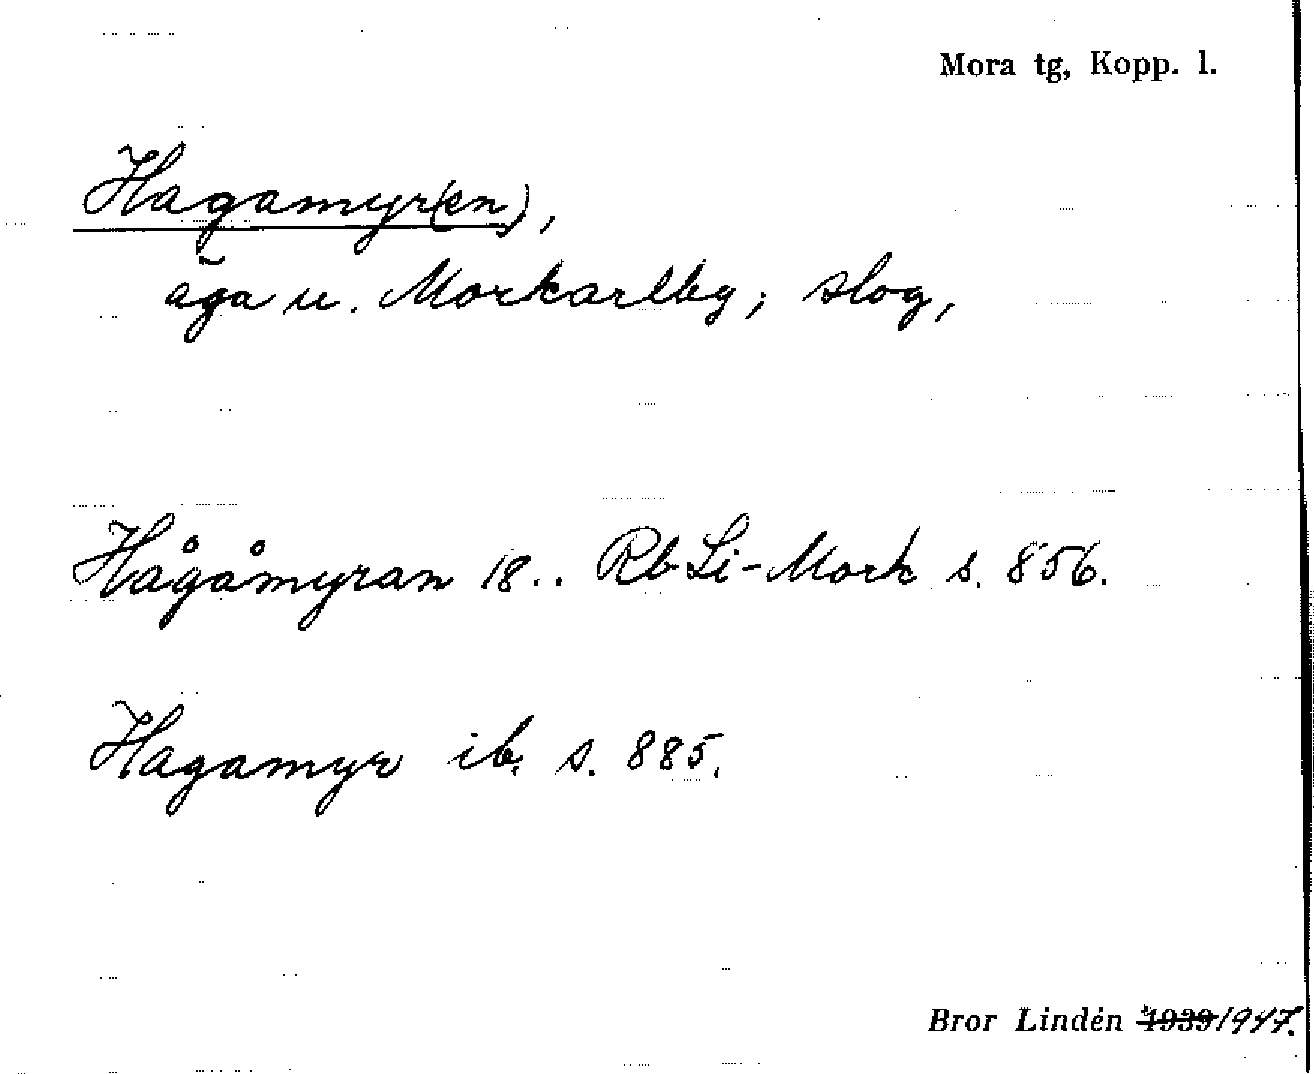 Mora tg, Kopp. l.
Hagamyr(en),
äga u. Morkarlby; slog,
Hågåmyran 18.. Rb Li-Mork s. 856.
Hagamyr ib. s. 885.
Bror Lindén 1939 1947.